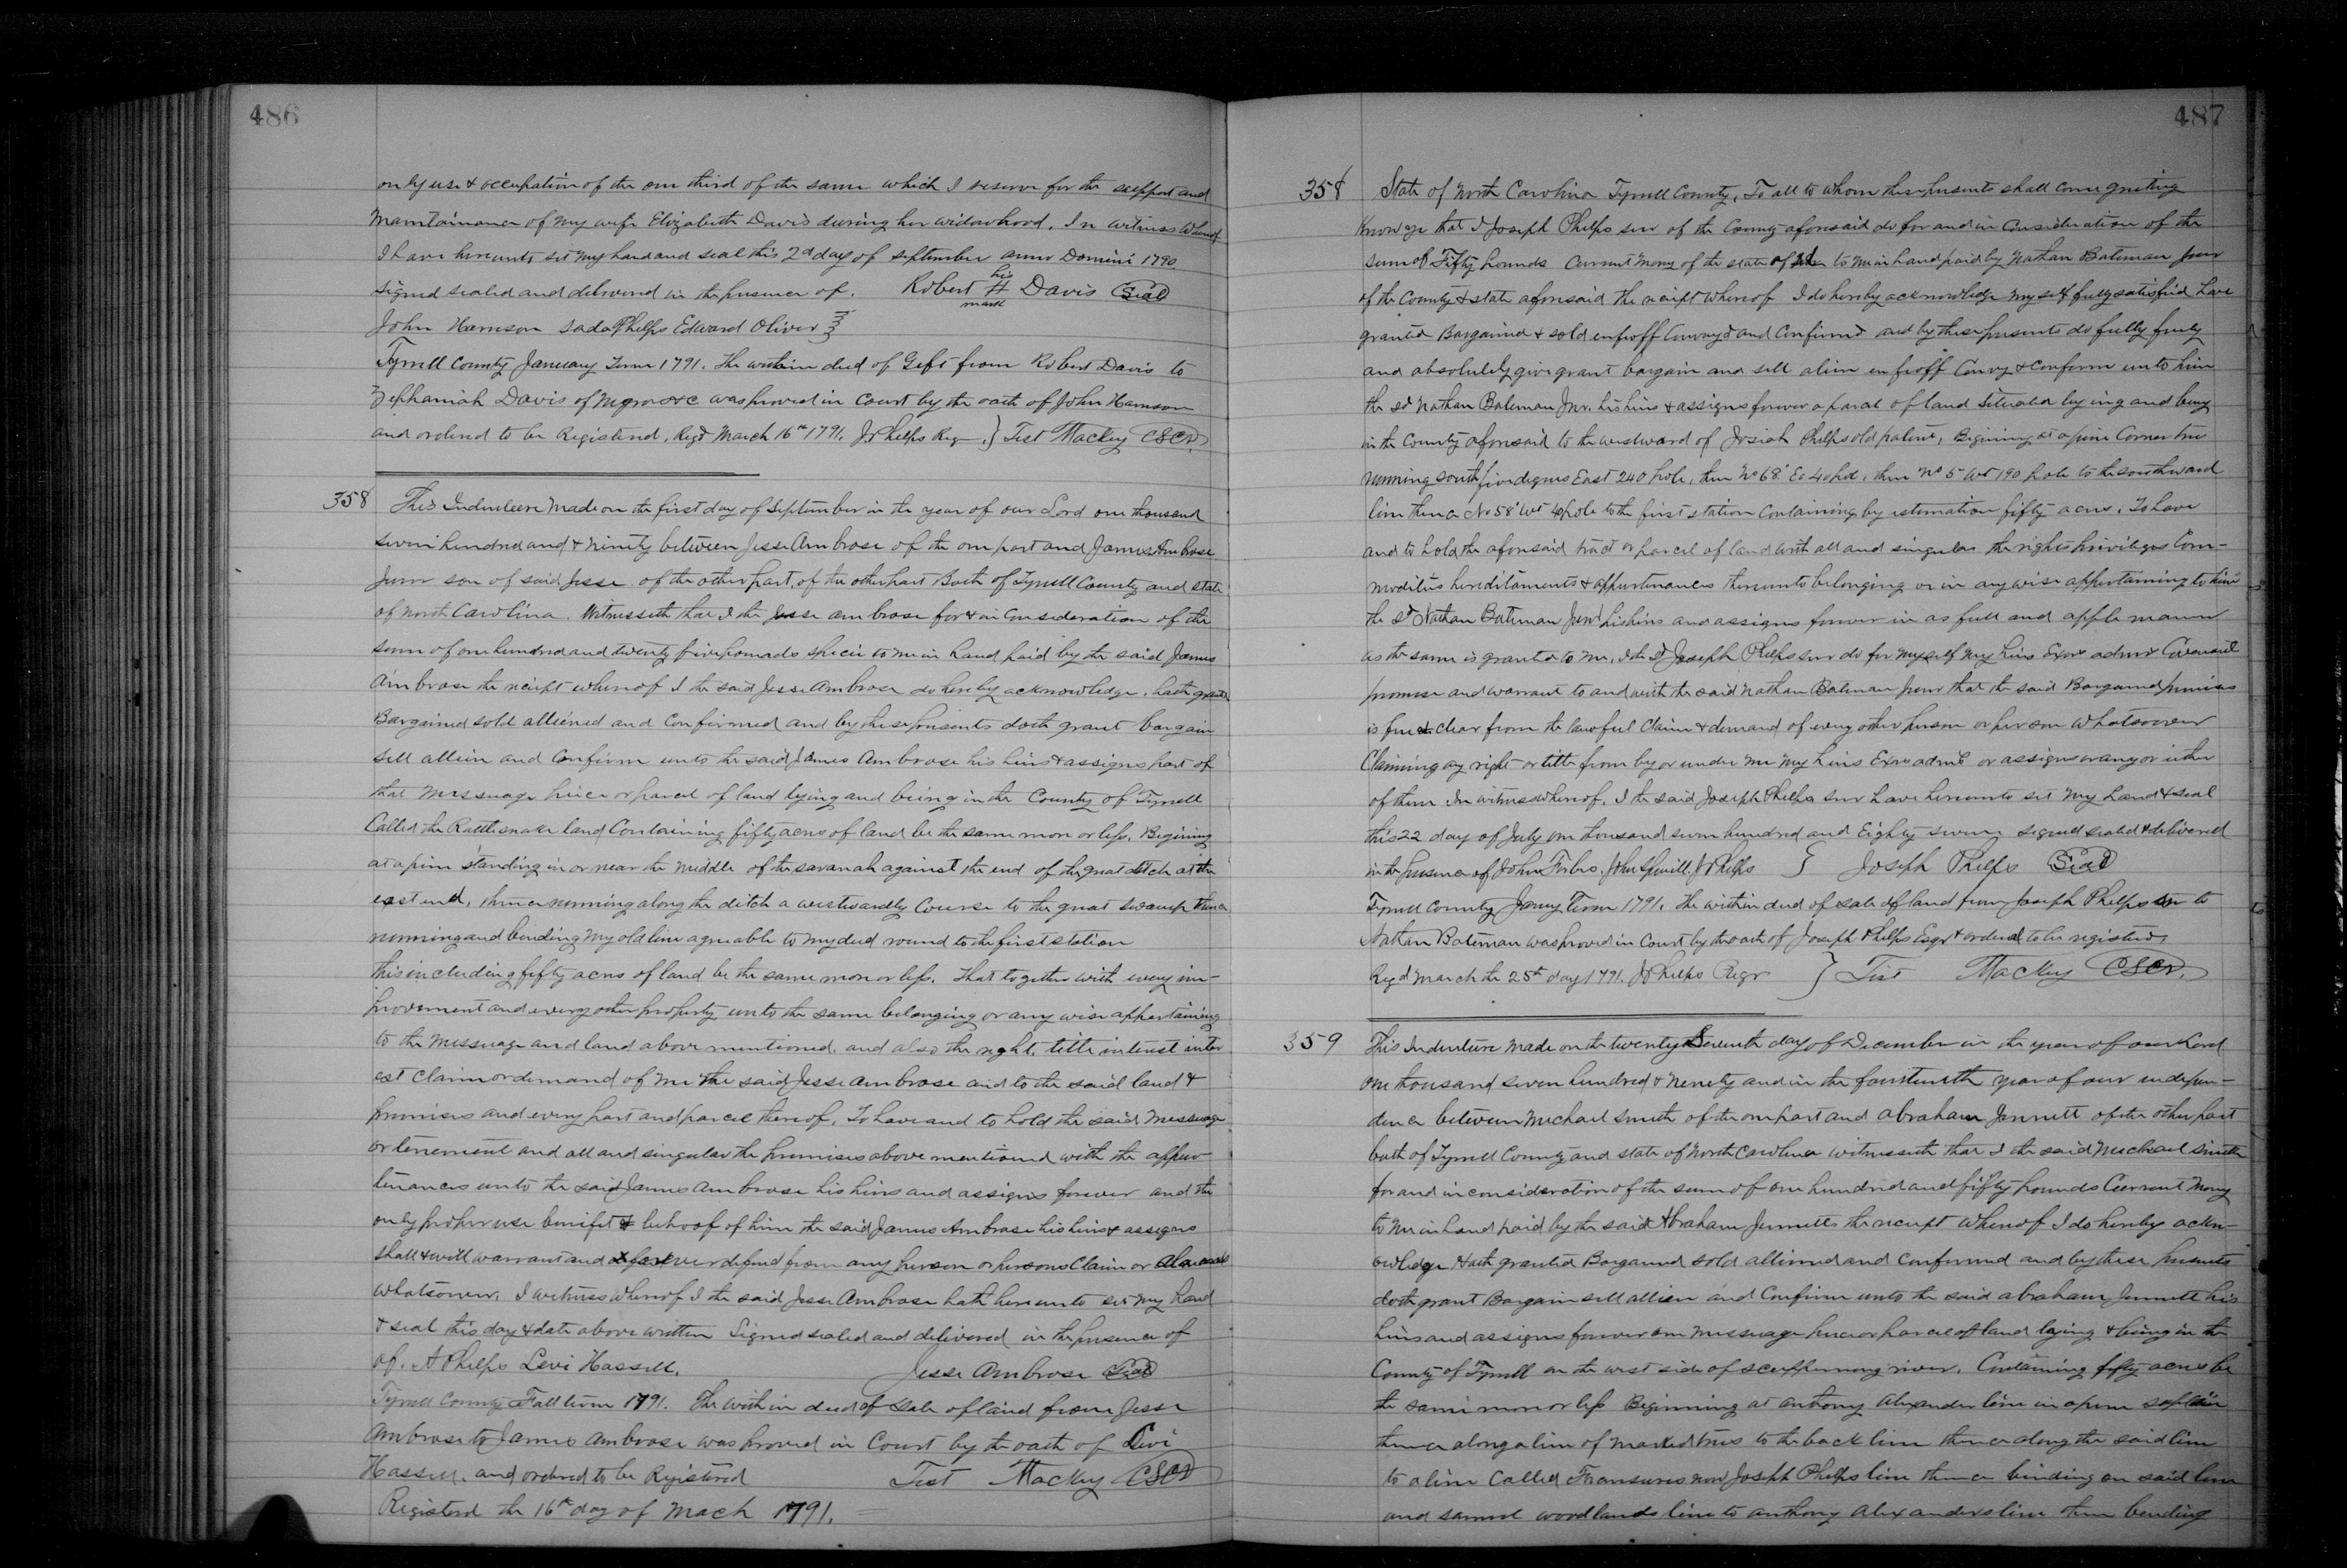 486
only use & occupation of the one third of the same which I reserve for the support and
Maintainance of my wife Elizabeth Davis during her widowhood. In witness whereof
I have hereunto set my hand and seal this 2d day of September anno Domini 1790
his
signed sealed and delivered in the presence of. Robert H Davis Seal
mark
John Harrison Phelps Edward Oliver
Tyrrell County January Term 1791. The within deed of Gift from Robert Davis to
Zephaniah Davis of Negroes &c was proved in Court by the oath of John Harrison
and ordered to be Registered. Regd March 16th 1791. J Phelps Reg } Test Mackey CSCD
358 This Indenture Made on the first day of September in the year of our Lord one thousand
seven hundred and & ninety between Jesse Ambrose of the one part and James Ambrose
Junr son of said Jesse of the other part. of the other part Both of Tyrrell County and state
of North Carolina. Witnesseth that I the Jesse Ambrose for & in Consideration of the
sum of one hundred and twenty five pounds specie to me in hand paid by the said James
Ambrose the receipt whereof I the said Jesse Ambrose do hereby acknowledge. hath granted
Bargained sold alliened and confirmed and by these presents doth grant bargain
sell allien and Confirm unto the said James Ambrose his heirs & assigns part of
that Messuage piece or parcel of land lying and being in the County of Tyrrell
Called the Rattlesnake land Containing fifty acres of land be the same more or less. Begining
at a pine standing in or near the middle of the savanah against the end of the great ditch at the
east end, thence running along the ditch a westwardly Course to the great swamp thence
running and binding my old line agreable to my deed round to the first station
this including fifty acres of land be the same more or less. That together with every im-
provement and every other property unto the same belonging or any wise appertaining
to the Messuage and land above mentioned, and also the right, title interest inter
est Claim or demand of me the said Jesse Ambrose and to the said land &
premises and every part and parcel thereof. To have and to hold the said Messuage
or tenement and all and singular the premises above mentioned with the appur-
tenances unto the said James Ambrose his heirs and assigns forever and the
only proper use benifit & behoof of him the said James Ambrose his heirs & assigns
shall & will warrant and forever defend from any person or persons Claim or
whatsoever. I witness whereof I the said Jesse Ambrose hath hereunto set my hand
& seal this day & date above written Signed sealed and delivered in the presence of
of. A Phelps Levi Hassell. Jesse Ambrose Seal
Tyrrell County Fall term 1791. The within deed of sale of land from Jesse
Ambrose to James Ambrose was proved in Court by the oath of Levi
Hassell. and ordered to be Registered Test Mackey CSCD
Registerd the 16th day of Mach 1791.
487
358 State of North Carolina Tyrrell County, To all to whom these presents shall come greeting
Know ye that I Joseph Phelps senr of the County aforesaid do for and in Consideration of the
sum of Fifty pounds Current Money of the state of to me in hand paid by Nathan Bateman Junr
of the County & state aforesaid the receipt whereof I do hereby acknowledge myself fully satisfied have
granted Bargained & sold enfeoff Conveyd and Confirmd and by these presents do fully freely
and absolutely give grant bargain and sell alien enfeoff Convey & conform unto him
the sd Nathan Bateman Jnr. his heirs & assigns forever a parcel of land Situated lying and being
in the County aforesaid to the westward of Josiah Phelps old patent, Begining at a pine Corner tree
running south five degrees East 240 pole, then No 68 Et 40 pol, then No 5 Wt 190 pole to the southward
line thence No 58 Wt 40 pole to the first station Containing by estimation fifty acres. To have
and to hold the aforesaid tract or parcel of land with all and singular the rights priviliges Com-
modities hereditaments & appurtenances thereunto belonging or in any wise appertaining to him
the sd Nathan Bateman Junr his heirs and assigns forever in as full and apple manner
as the same is granted to me, I the sd Joseph Phelps senr do for myself my heirs Exors admrs Covenant
promise and warrant to and with the said Nathan Bateman Junr that the said Bargained premises
is free & clear from the lawful Claim & demand of every other person or person whatsoever
Claiming any right or title from by or under me my heirs Exors admrs or assigns or any or either
of them In witness whereof, I the said Joseph Phelps senr have hereunto set my hand & seal
this 22 day of July one thousand seven hundred and Eighty seven signed sealed & delivered
in the presence of John Forbes. John Spruill. J Phelps } Joseph Phelps Seal
Tyrrell County Jany Term 1791. The within deed of sale of land from Joseph Phelps senr to
Nathan Bateman was proved in Court by the oath of Joseph Phelps Esqr & ordered to be registerd
Regd March the 25th day 1791. J Phelps Regr } Test Mackey CSCD.
359 This Indenture Made on the twenty Seventh day of December in the year of our Lord
one thousand seven hundred & ninety and in the fourteenth year of our indepen-
dence between Michael Smith of the one part and Abraham Jennett of the other part
both of Tyrrell County and state of North Carolina witnesseth that I the said Michael Smith
for and in consideration of the sum of one hundred and fifty pounds Current Money
to me in hand paid by the said Abraham Jennett the receipt whereof I do hereby ackn-
owledge Hath granted Bargained sold alliened and confirmed and by these presents
doth grant Bargain sell allien and Confirm unto the said Abraham Jennett his
heirs and assigns forever one messuage piece or parcel of land lying & being in the
County of Tyrrell on the west side of scuppernong river. Containing fifty acres be
the same more or less Beginning at Anthony Alexander line in a pine saplin
thence along a line of marked trees to the back line thence along the said line
to a line Called now Joseph Phelps line thence binding on said line
and samuel woodlands line to Anthony Alexanders line then bending